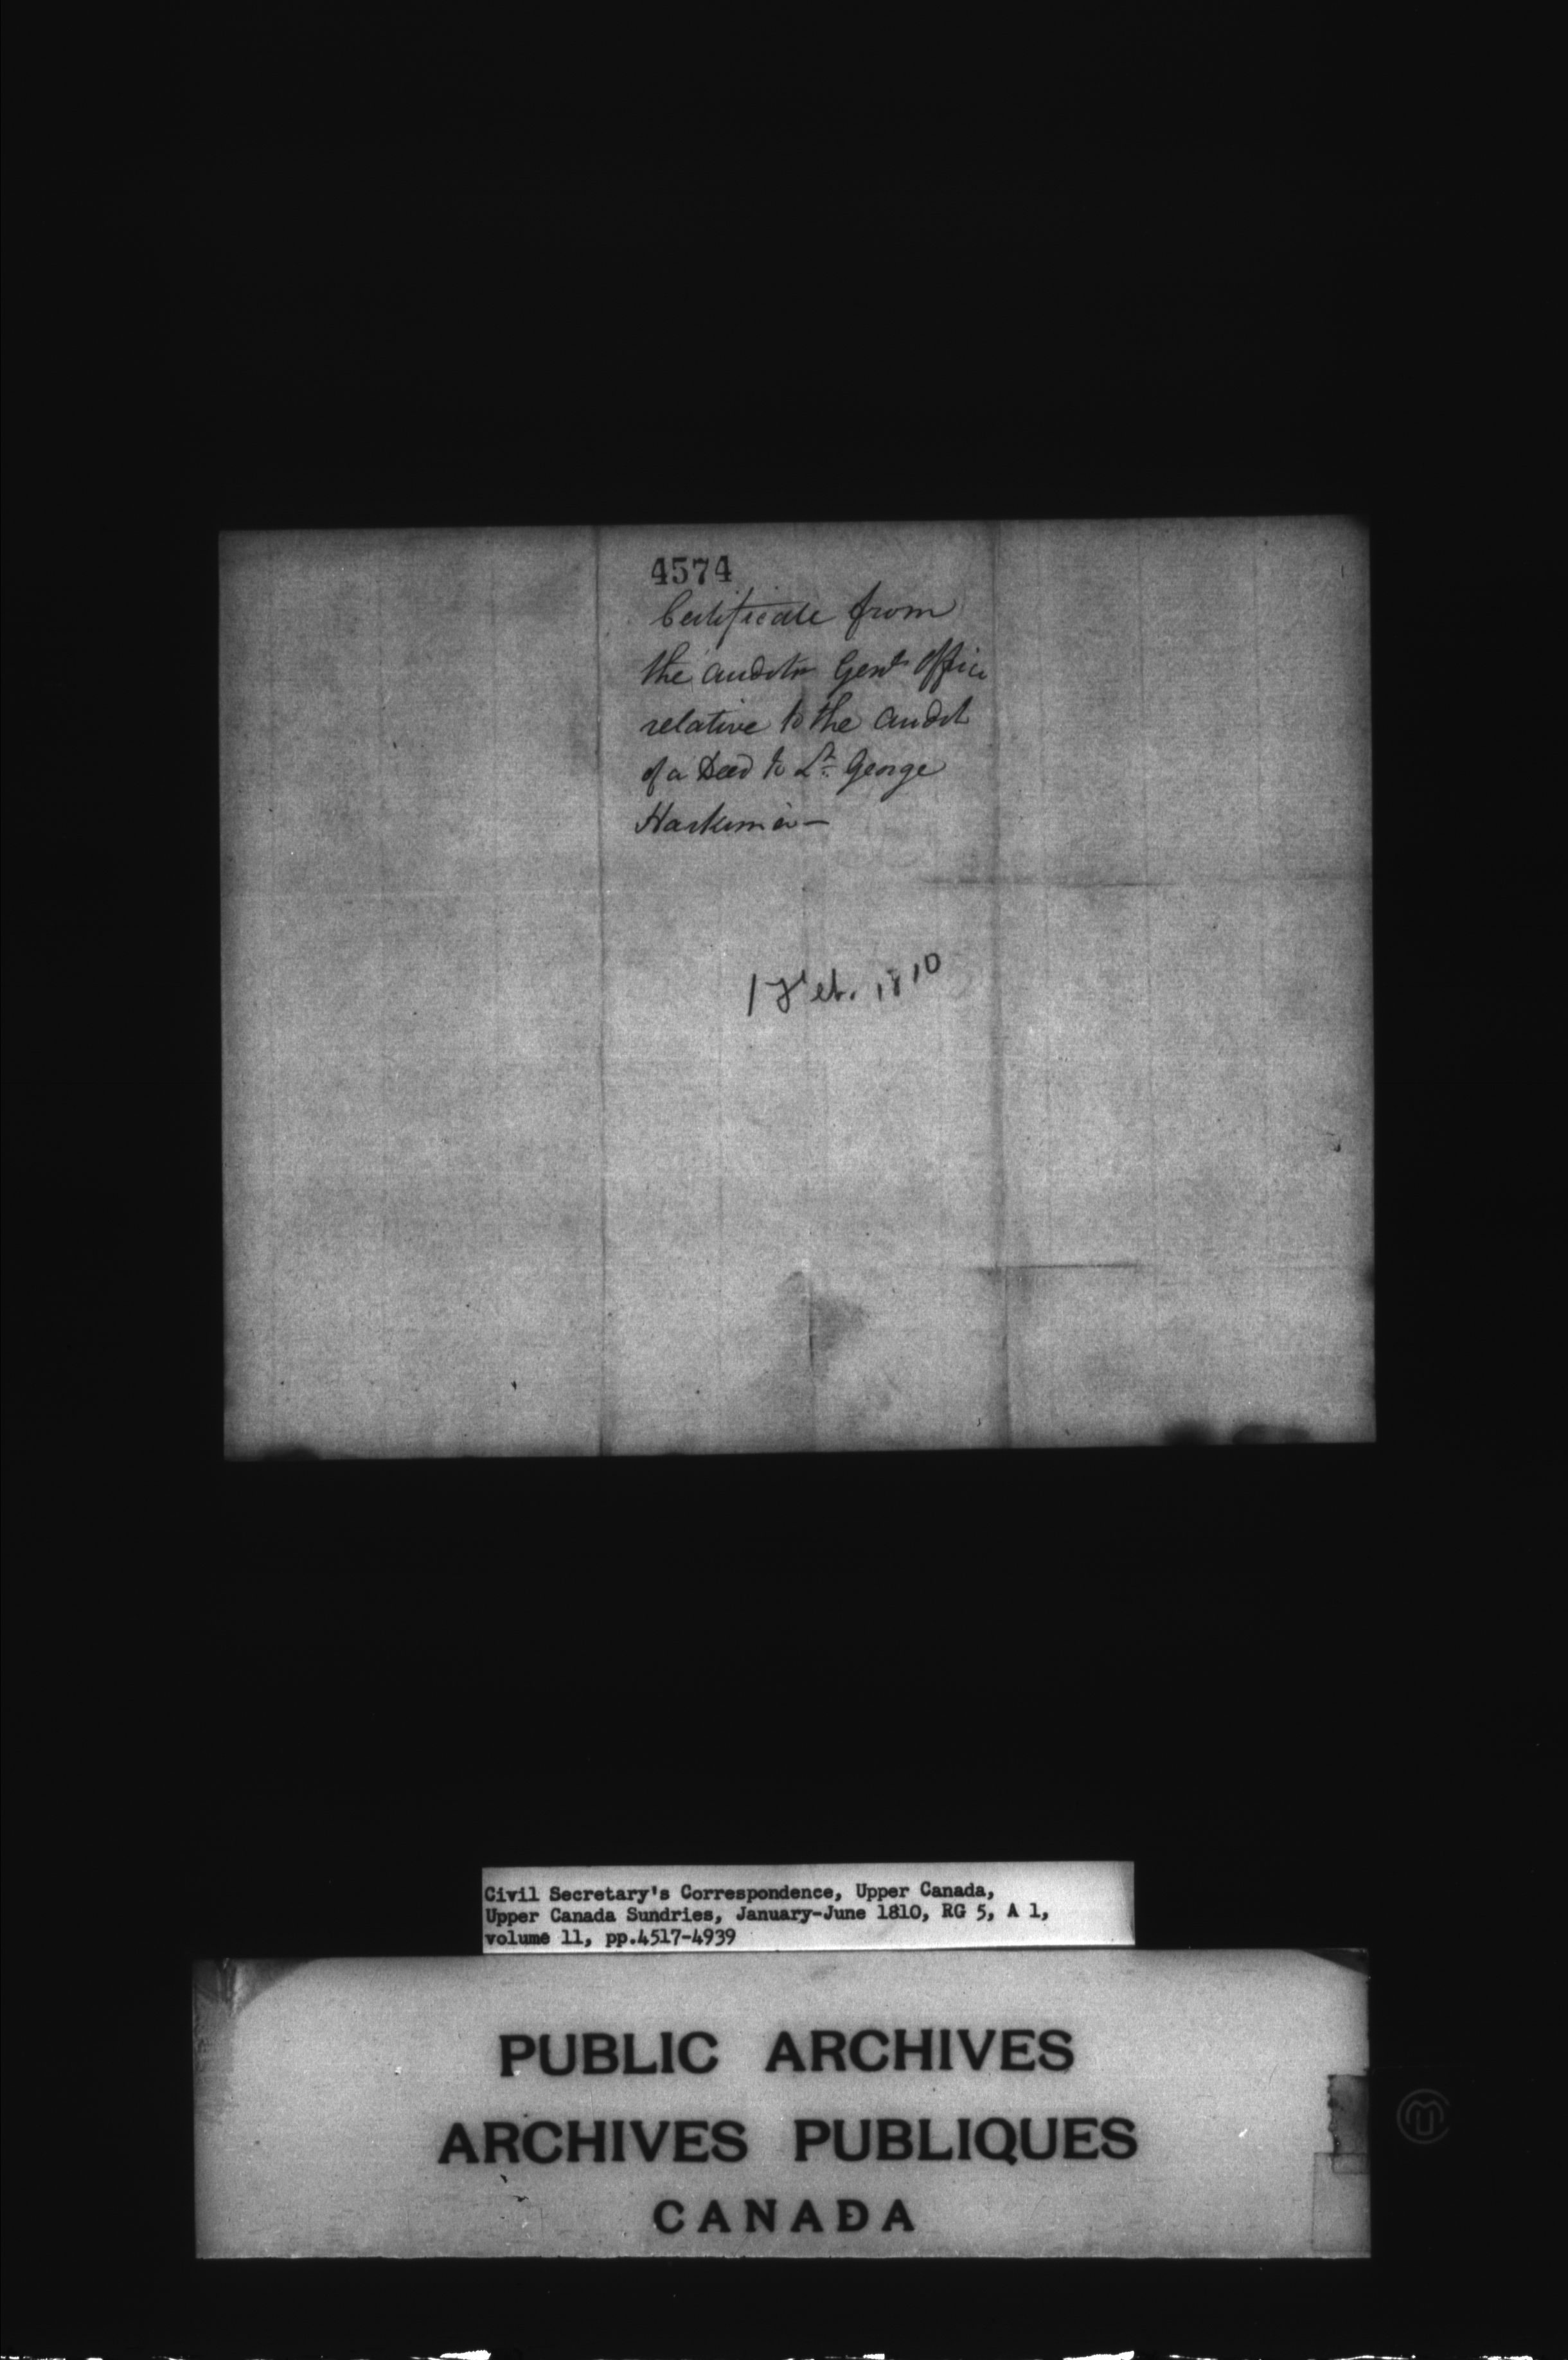 4574
Certificate from
the Auditor Genl Office
relative to the Audit
of a Deed to Lt. George
Harkimer—
1 Feb. 1810
Civil Secretary's Correspondence, Upper Canada,
Upper Canada Sundries, January-June 1810, RG 5, A 1,
volume 11, pp.4517-4939
PUBLIC ARCHIVES
ARCHIVES PUBLIQUES
CANADA